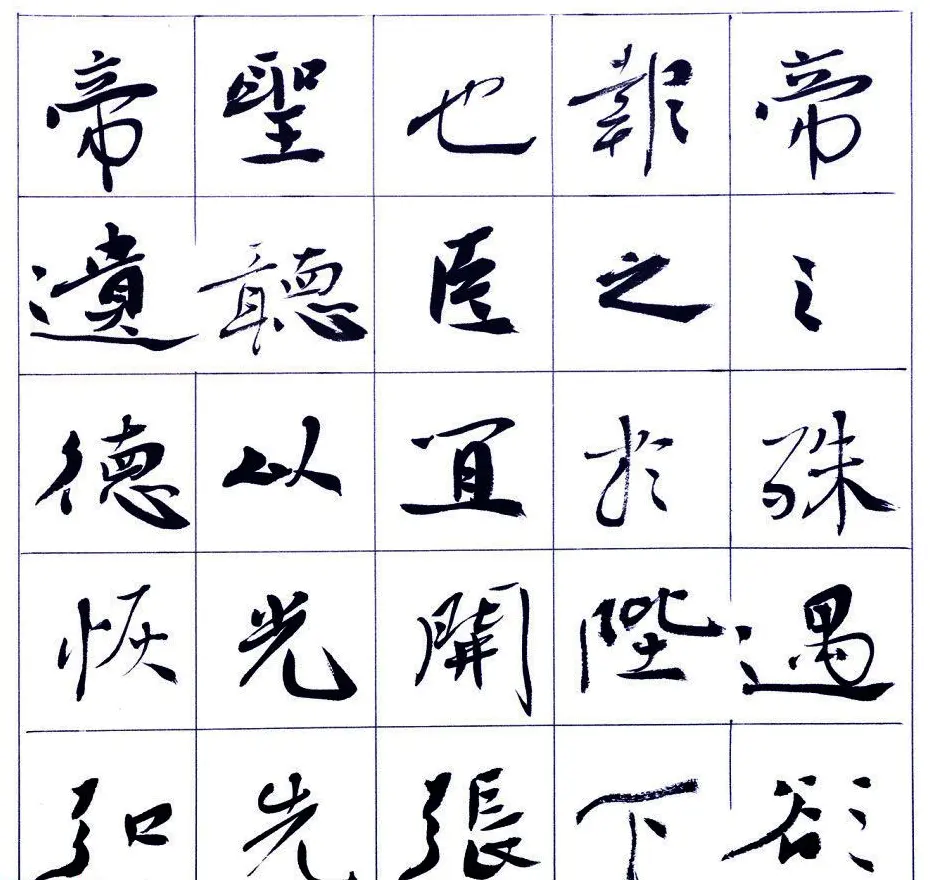 帝之殊遇欲
報之於陛下
也臣宜開張
聖聽以光先
帝遺德恢弘